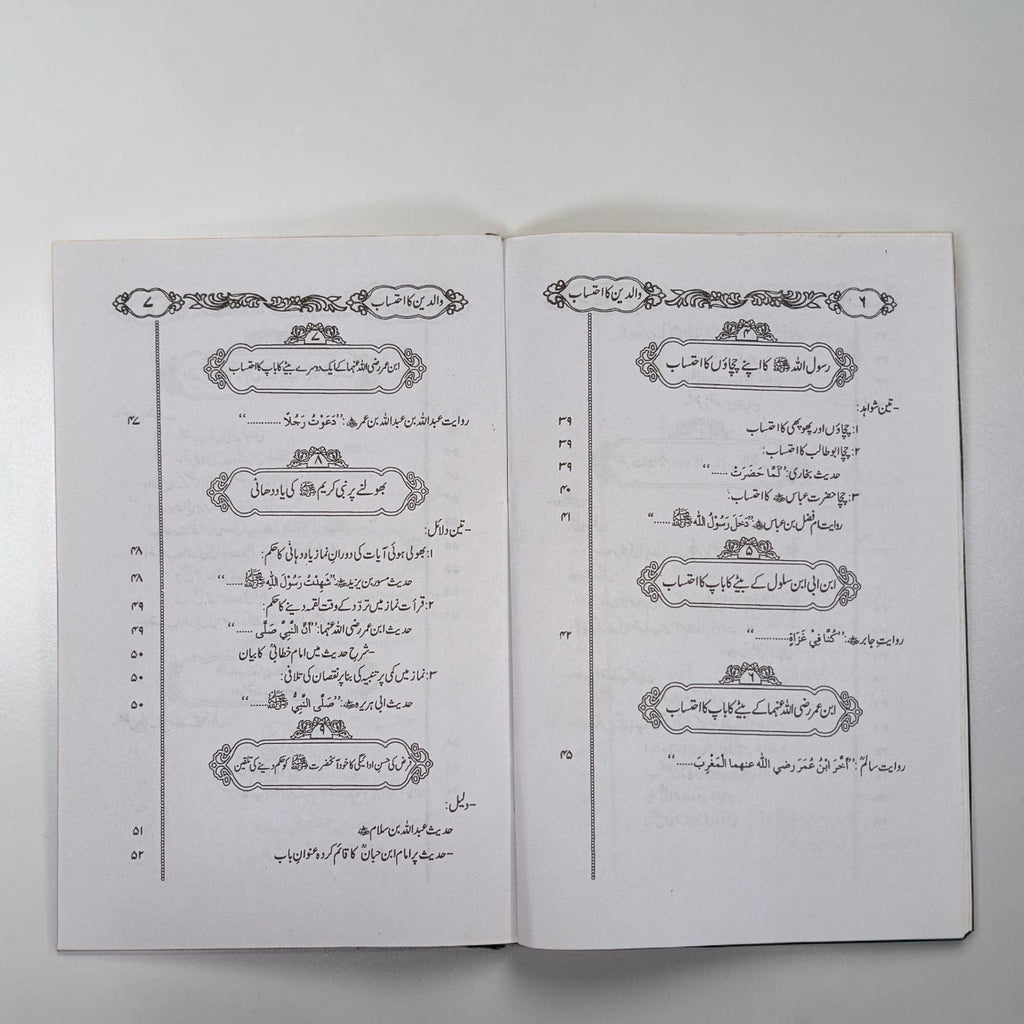 والدین کا احتساب ۶
۴
رسول اللہ ﷺ کا اپنے چچاؤں کا احتساب
- تین شواہد:
۱: چچاؤں اور پھوپھی کا احتساب ۳۹
۲: چچا ابوطالب کا احتساب: ۳۹
حدیث بخاری: ”لَمَّا حَضَرَتْ ......“ ۳۹
۳: چچا حضرت عباس رضی اللہ عنہ کا احتساب: ۴۰
روایت ام فضل ابن عباس رضی اللہ عنہ: ”دَخَلَ رَسُوْلُ اللہِ ﷺ ......“ ۴۱
۵
ابن ابی ابن سلول کے بیٹے کا باپ کا احتساب
روایت جابر رضی اللہ عنہ: ”كُنَّا فِيْ غَزَاةٍ ............“ ۴۲
۶
ابن عمر رضی اللہ عنہما کے بیٹے کا باپ کا احتساب
روایت سالمؒ: ”أَخَّرَ ابْنُ عُمَرَ رضي الله عنهما الْمَغْرِبَ ......“ ۴۵
والدین کا احتساب ۷
۷
ابن عمر رضی اللہ عنہما کے ایک دوسرے بیٹے کا باپ کا احتساب
روایت عبداللہ بن عبداللہ بن عمر رضی اللہ عنہ: ”دَعَوْتُ رَجُلًا ............“ ۴۷
۸
بھولنے پر نبی کریم ﷺ کی یاددھانی
- تین دلائل:
۱: بھولی ہوئی آیات کی دورانِ نماز یاد دہانی کا حکم: ۴۸
حدیث مسور بن یزید رضی اللہ عنہ: ”شَهِدْتُ رَسُوْلَ اللہِ ﷺ ......“ ۴۸
۲: قرأت نماز میں تردّد کے وقت لقمہ دینے کا حکم: ۴۹
حدیث ابن عمر رضی اللہ عنہما: ”أَنَّ النَّبِيَّ صَلَّى ......“ ۴۹
- شرح حدیث میں امام خطابیؒ کا بیان ۵۰
۳: نماز میں کمی پر تنبیہ کی بنا پر نقصان کی تلافی: ۵۰
حدیث ابی ہریرہ رضی اللہ عنہ: ”صَلَّى النَّبِيُّ ﷺ ......“ ۵۰
۹
قرض کی حسن ادائیگی کا خود آنحضرت ﷺ کو حکم دینے کی تلقین
- دلیل:
حدیث عبداللہ بن سلام رضی اللہ عنہ ۵۱
- حدیث پر امام ابن حبانؒ کا قائم کردہ عنوانِ باب ۵۲